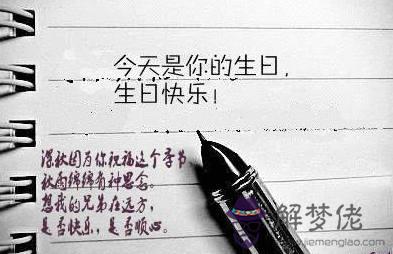 今天是你的生日,
生日快乐!
深秋因为你祝福这个季节
秋雨绵绵有种思念。
想我的兄弟在远方,
是否快乐,是否顺心。
解梦佬
www.jiemenglao.com